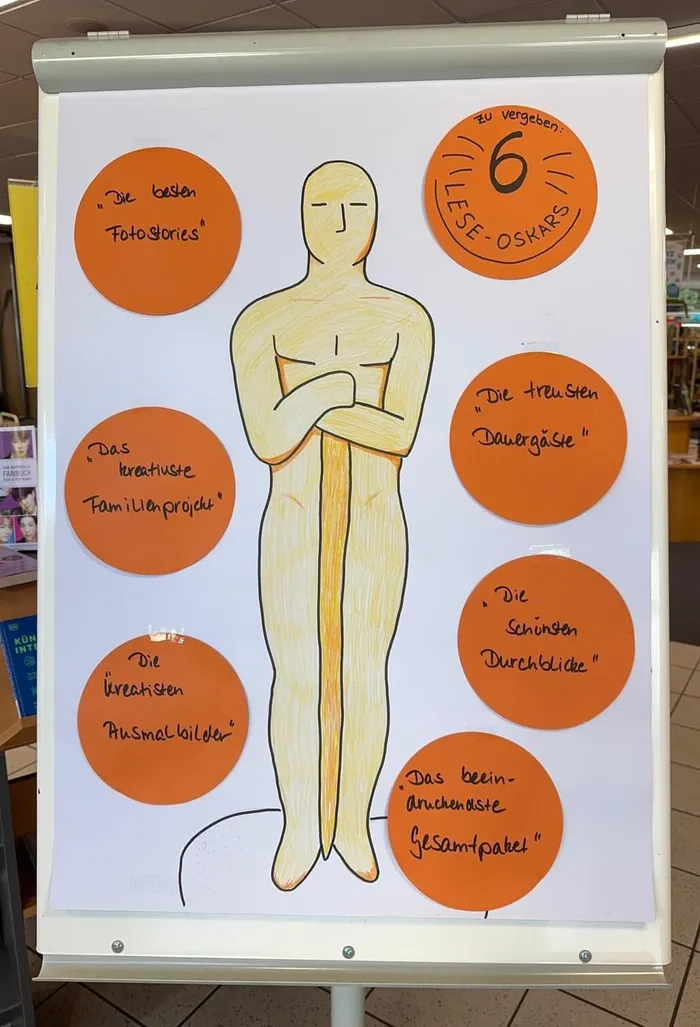 zu vergeben:
6
LESE-OSKARS
„Die besten
Fotostories"
„Die treusten
Dauergäste"
„Das
kreativste
Familienprojekt"
„Die
schönsten
Durchblicke"
Die
"kreatisten
Ausmalbilder"
„Das beein-
druckendste
Gesamtpaket"
FANBUCH
KÜN
INTE